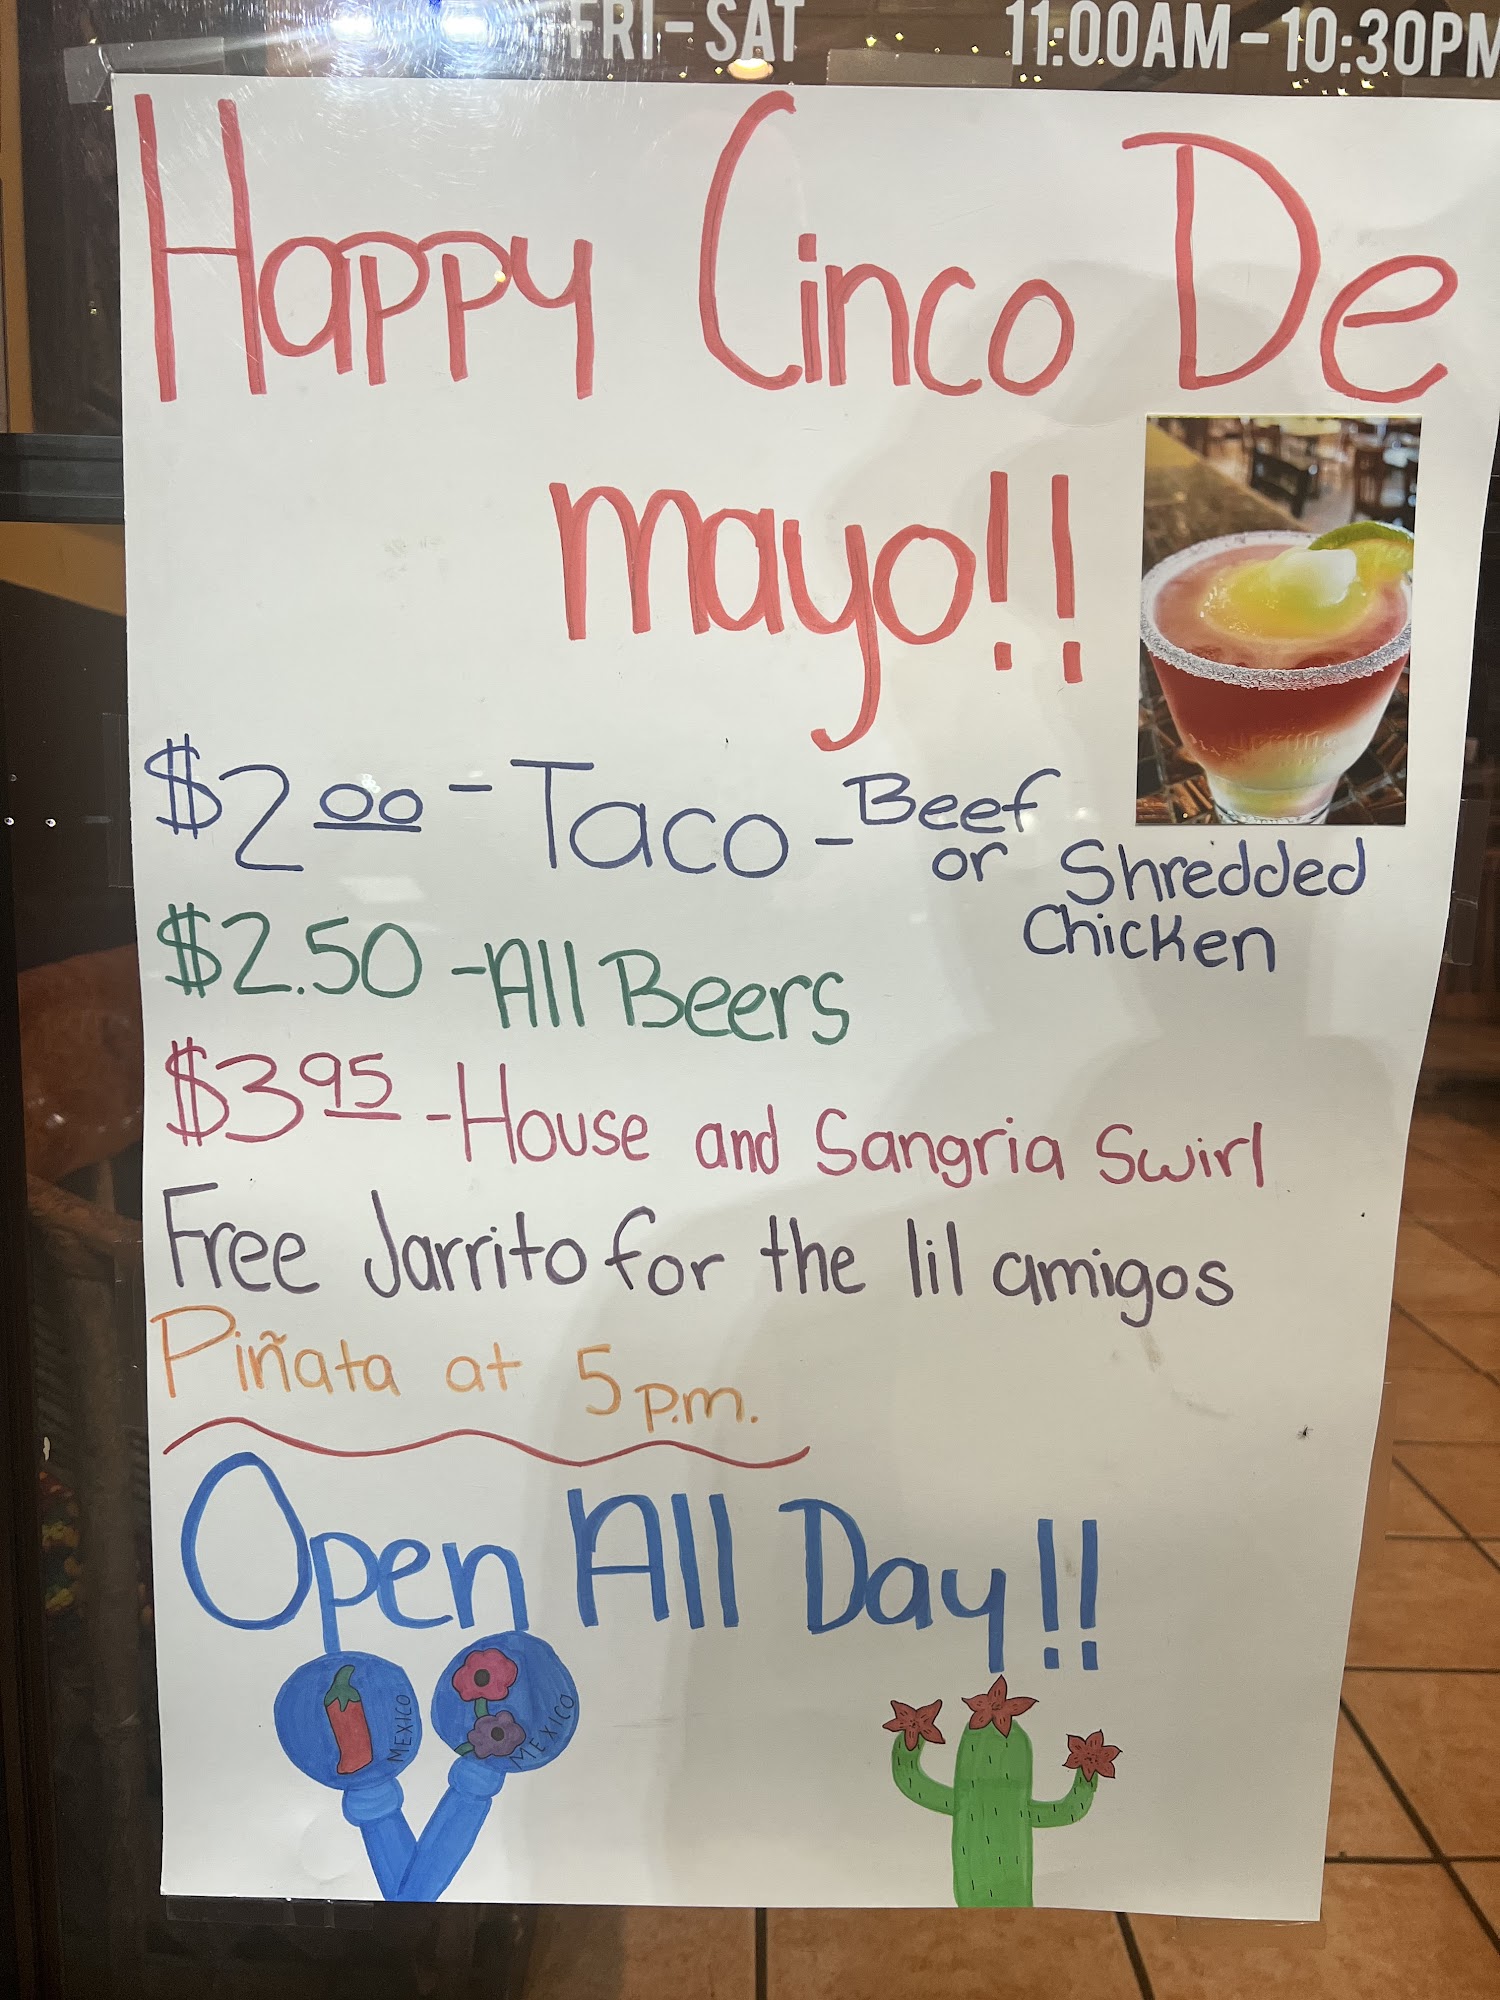 FRI-SAT 11:00AM-10:30PM
Happy Cinco De
mayo!!
$2.00 - Taco - Beef
or Shredded
Chicken
$2.50 - All Beers
$3.95 - House and Sangria Swirl
Free Jarrito for the lil amigos
Piñata at 5 p.m.
Open All Day!!
MEXICO
MEXICO